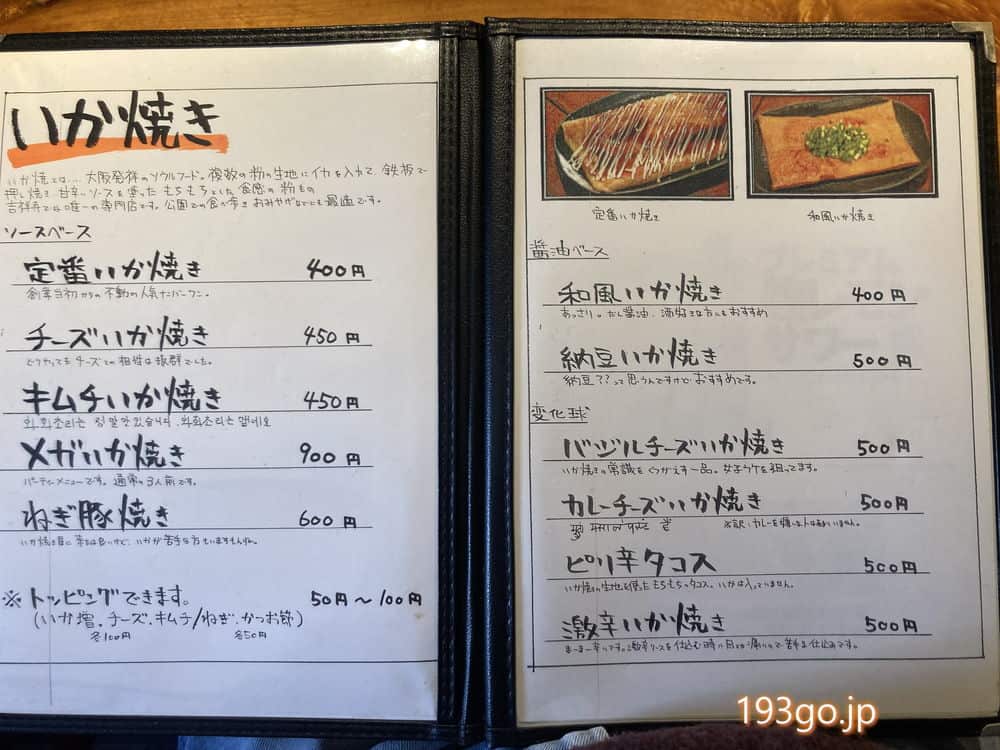 いか焼き
いか焼とは… 大阪発祥のソウルフード。複数の粉の生地にイカを入れて、鉄板で
押し焼き、甘辛いソースを塗った もちもちとした食感の粉もの
吉祥寺では唯一の専門店です。公園での食べ歩き おみやげなどにも最適です。
ソースベース
定番いか焼き 400円
創業当初からの不動の人気ナンバーワン。
チーズいか焼き 450円
どうやってもチーズとの相性は抜群でした。
キムチいか焼き 450円
メガいか焼き 900円
パーティーメニューです。通常の3人前です。
ねぎ豚焼き 600円
※トッピングできます。 50円〜100円
(いか増、チーズ、キムチ/ねぎ、かつお節)
各100円 各50円
定番いか焼き
和風いか焼き
醤油ベース
和風いか焼き 400円
あっさり。だし醤油、酒好きな方にもおすすめ
納豆いか焼き 500円
納豆??って思うんですけど、おすすめです。
変化球
バジルチーズいか焼き 500円
いか焼きの常識をくつがえす一品。女子ウケを狙ってます。
カレーチーズいか焼き 500円
※訳、カレーを嫌いな人はあまりいません。
ピリ辛タコス 500円
いか焼の生地を使ったもちもちのタコス。いかは入っていません。
激辛いか焼き 500円
まーまー辛いです。激辛ソースを仕込む時に目とか痛いので苦手な仕込みです。
193go.jp